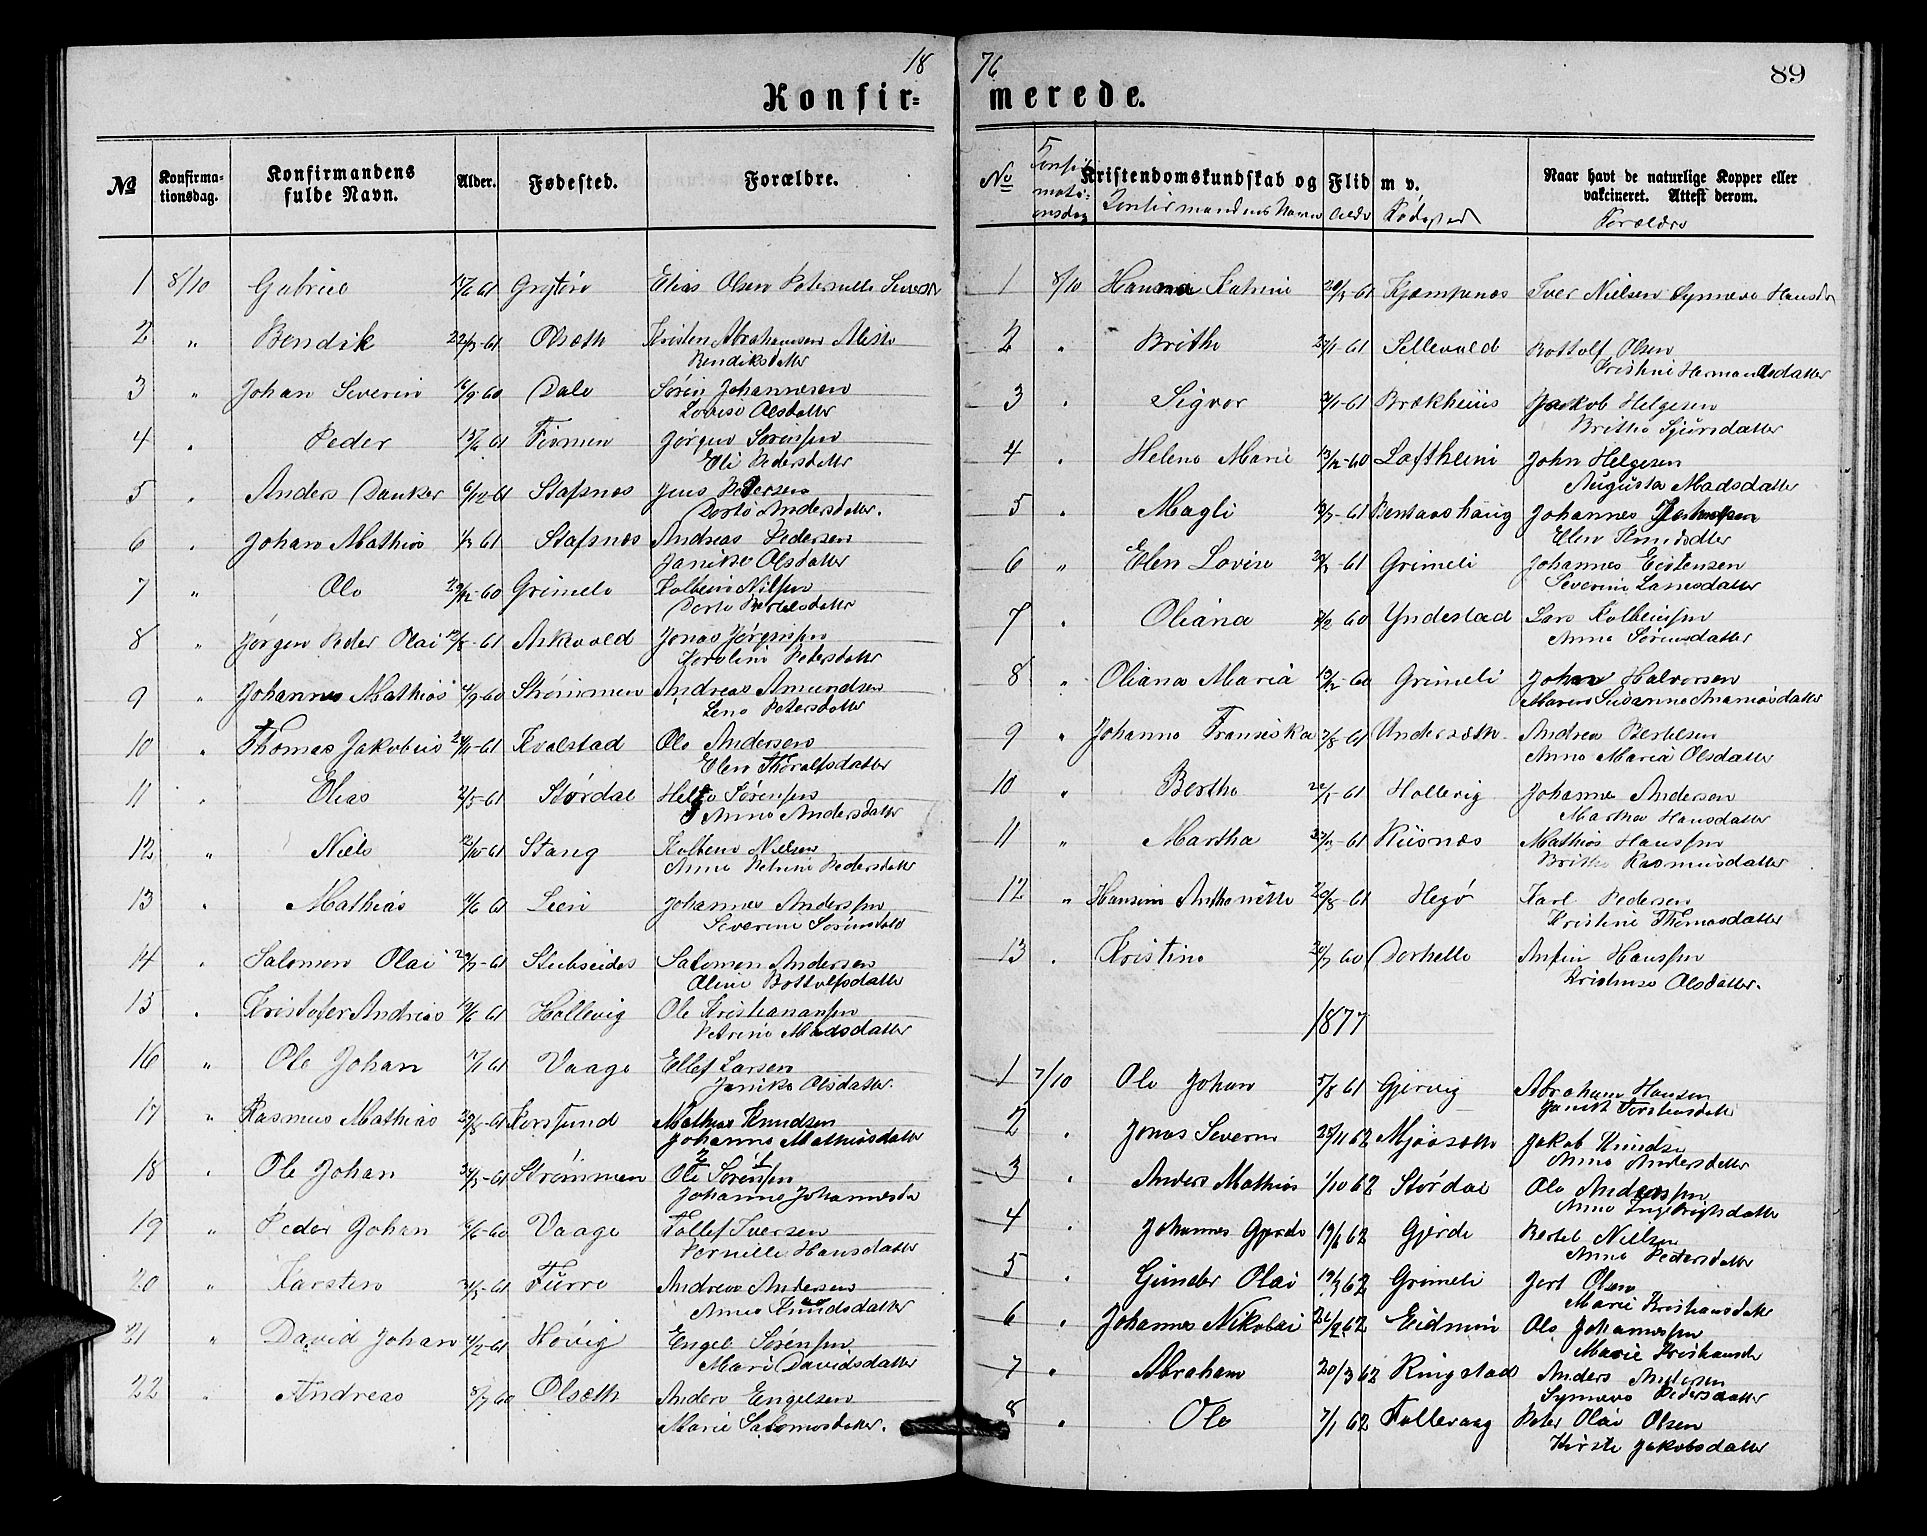 1876
89
Konfirmerede.
№ Konfirmationsdag. Konfirmandens fulde Navn. Alder. Fødested. Forældre.
1 8/10 Gabriel 61 Grytøre Elias Olsen Peternelle
2 " Bendik 61 Olsæth Kristen Abrahamsen
Bendiksdatter
3 " Johan Severin 60 Dale Søren Johannesen
Lovise Olsdatter
4 " Peder 61 Jørgen Sørensen
Eli Pedersdatter
5 " Anders Danker 61 Stafsnæs Jens Petersen
Dorte Andersdatter.
6 " Johan Mathias 61 Stafsnæs Andreas Pedersen
Janikke Olsdatter
7 " Ole 60 Grimele Kolbein Nilsen
Dorte Bertelsdatter
8 " Jørgen Peder Olai 61 Askvold Jonas Jørgensen
Karolini Petersdatter
9 " Johannes Mathias 60 Strømmen Andreas Amundsen
Lene Petersdatter
10 " Thomas Jakobus 61 Kvalstad Ole Andersen
Elen Thoralfsdatter
11 " Elias 61 Størdal Helge Sørensen
Anne Andersdatter
12 " Niels 61 Stang Kolbein Nielsen
Anne Petrine Pedersdatter
13 " Mathias 61 Leen Johannes Anderssen
Severine Sørensdatt
14 " Salomon Olai 61 Stubseidet Salomon Andersen
Oline Bottolfsdatter
15 " Kristofer Andreas 61 Hellevig Ole Kristiansen
Petrine Madsdatter
16 " Ole Johan 61 Vaage Ellef Larsen
Janike Olsdatter.
17 " Rasmus Mathias 61 Korssund Mathias Knudsen
Johanne Mathiasdatter
18 " Ole Johan 61 Strømmen Ole Sørensen
Johanne Johannesda
19 " Peder Johan 60 Vaage Tollef Iversen
Pernille Hansdatter
20 " Karsten 61 Furre Andreas Andersen
Anne Knudsdatter
21 " David Johan 61 Høvig Engel Sørensen
Mari Davidsdatter
22 " Andreas 8/7 60 Olsæth Anders Engelsen
Marie Salomosdatter.
№ Konfirmationsdag Kristendomskundskab og Flid m v. Naar havt de naturlige Kopper eller vakcineret. Attest derom.
Konfirmandens Navn Alder Fødested Forældre
1 8/10 Hanna Katrine 61 Kjempenes Iver Nielsen Synneve Hansdr
2 " Brithe 61 Sellevold Bottolf Olsen
Kristine Hermandsdatter
3 " Sigvor 61 Brækheiis Jakob Helgesen
Brithe Sjursdatter
4 " Helene Marie 60 Loftheim John Helgesen
Augusta Madsdatter
5 " Magli 61 Bentanshaug Johannes
Elen Knudsdtter
6 " Elen Lovise 61 Grimeli Johannes Eistensen
Severine Larnsdatter
7 " Oliana 60 Yndestad Lars Kolbeinsen
Anne Sørensdatter
8 " Oliana Maria 60 Grimeli John Halvorsen
Maren Susanne Ananiasdatter
9 " Johanne Fransiska 61 Undersæth Andrea Bertelsen
Anne Maria Olsdatter
10 " Berthe 61 Hellevig Johannes Andersen
Martha Hansdatter
11 " Martha 61 Riisnæs Mathias Hanssen
Brithe Rasmusdatter
12 " Hansine Anthonette 20/8 61 Hegø Karl Pedersen
Kristine Thomasdatter
13 " Kristine 60 Dorhelle Anfin Hanssen
Kristense Olsdatter.
1877
1 7/10 Ole Johan 5/8 61 Gjervig Abraham Hansen
Janikk Torstensdatt
2 " Jonas Severin 25/11 62 Mjøsæth Jakob Knuds.
Anne Andersdatter
3 " Anders Mathias 1/10 62 Størdal Ole Anderssen
Anne Ingebrigtsdatter
4 " Johannes Gjerde 62 Gjerde Bertel Nielsen
Anne Pedersdatter
5 " Gunder Olai 19/3 62 Grimeli Jert Olsen
Marie Kristiansdatter
6 " Johannes Nikolai 62 Eidmin Ole Johannessen
Marie Kristiansdr
7 " Abraham 20/3 62 Ringstad Anders Andersen
Synneve Pedersdatter
8 " Ole 7/1 62 Tollevaag Peter Olai Olsen
Kirsti Jakobsdatter